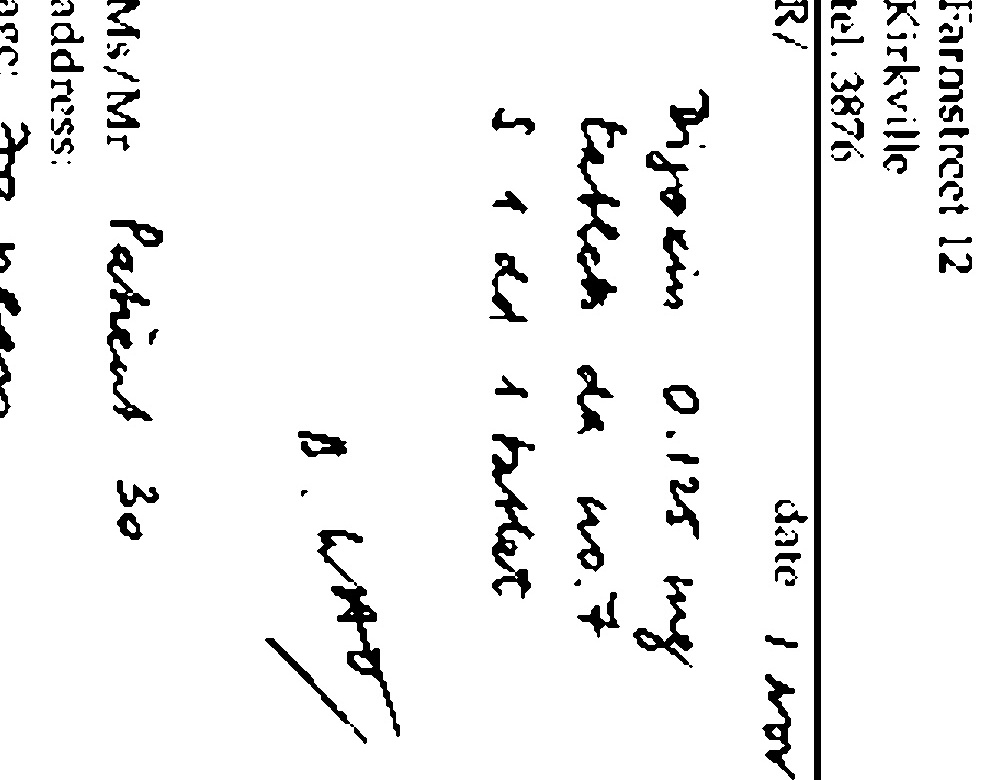 Farmstreet 12
Kirkville
tel. 3876
R/ date 1 nov
Digoxin 0.125 mg
tablet da no. 7
S 1 dd 1 tablet
Ms/Mr Patient 30
address:
age: